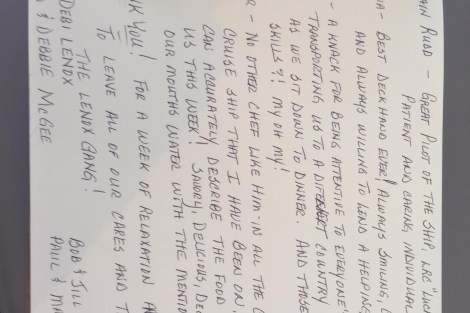 AIN RUDD – GREAT PILOT OF THE SHIP LRC "LUC
PATIENT AND CARING INDIVIDUAL
IA – BEST DECKHAND EVER! ALWAYS SMILING,
AND ALWAYS WILLING TO LEND A HELPING
– A KNACK FOR BEING ATTENTIVE TO EVERYONE'S
TRANSPORTING US TO A DIFFERENT COUNTRY
AS WE SIT DOWN TO DINNER. AND THOSE
SKILLS?! MY OH MY!
R – NO OTHER CHEF LIKE HIM – IN ALL THE
CRUISE SHIP THAT I HAVE BEEN ON,
CAN ACCURATELY DESCRIBE THE FOOD
US THIS WEEK! SAVORY, DELICIOUS, DEC
OUR MOUTHS WATER WITH THE MENTIO
NK YOU! FOR A WEEK OF RELAXATION AN
TO LEAVE ALL OF OUR CARES AND T
THE LENOX GANG!
DEBI LENOX
BOB & JILL
& DEBBIE MCGEE
PAUL & MA